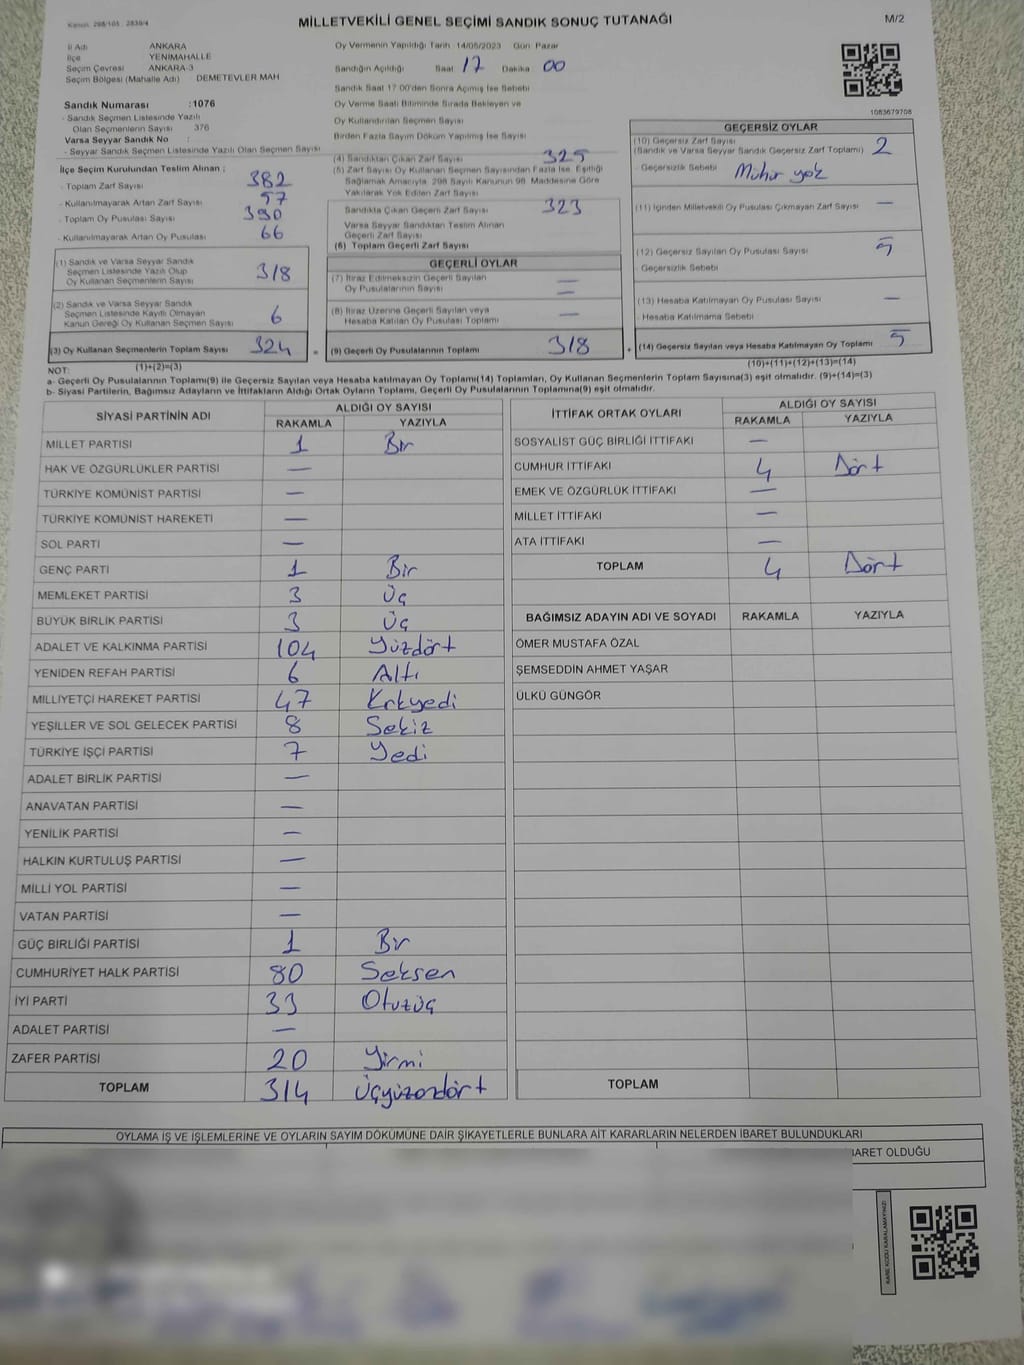 Kanun: 298/105 , 2839/4
MİLLETVEKİLİ GENEL SEÇİMİ SANDIK SONUÇ TUTANAĞI
M/2
İl Adı ANKARA
İlçe YENİMAHALLE
Seçim Çevresi ANKARA-3
Seçim Bölgesi (Mahalle Adı) DEMETEVLER MAH
Oy Vermenin Yapıldığı Tarih 14/05/2023 Gün Pazar
Sandığın Açıldığı Saat 17 Dakika 00
Sandık Saat 17.00'den Sonra Açılmış İse Sebebi
Oy Verme Saati Bitiminde Sırada Bekleyen ve
Oy Kullandırılan Seçmen Sayısı
Birden Fazla Sayım Döküm Yapılmış İse Sayısı
1083679708
Sandık Numarası :1076
- Sandık Seçmen Listesinde Yazılı
Olan Seçmenlerin Sayısı 376
Varsa Seyyar Sandık No :
- Seyyar Sandık Seçmen Listesinde Yazılı Olan Seçmen Sayısı
İlçe Seçim Kurulundan Teslim Alınan ;
- Toplam Zarf Sayısı 382
- Kullanılmayarak Artan Zarf Sayısı 57
- Toplam Oy Pusulası Sayısı 390
- Kullanılmayarak Artan Oy Pusulası 66
(1) Sandık ve Varsa Seyyar Sandık
Seçmen Listesinde Yazılı Olup
Oy Kullanan Seçmenlerin Sayısı 318
(2) Sandık ve Varsa Seyyar Sandık
Seçmen Listesinde Kayıtlı Olmayan
Kanun Gereği Oy Kullanan Seçmen Sayısı 6
(3) Oy Kullanan Seçmenlerin Toplam Sayısı 324
(1)+(2)=(3)
(4) Sandıktan Çıkan Zarf Sayısı 325
(5) Zarf Sayısı Oy Kullanan Seçmen Sayısından Fazla İse, Eşitliği
Sağlamak Amacıyla, 298 Sayılı Kanunun 98. Maddesine Göre
Yakılarak Yok Edilen Zarf Sayısı
Sandıkta Çıkan Geçerli Zarf Sayısı 323
Varsa Seyyar Sandıktan Teslim Alınan
Geçerli Zarf Sayısı
(6) Toplam Geçerli Zarf Sayısı
GEÇERLİ OYLAR
(7) İtiraz Edilmeksizin Geçerli Sayılan
Oy Pusulalarının Sayısı —
—
(8) İtiraz Üzerine Geçerli Sayılan veya
Hesaba Katılan Oy Pusulası Toplamı —
= (9) Geçerli Oy Pusulalarının Toplamı 318
GEÇERSİZ OYLAR
(10) Geçersiz Zarf Sayısı
(Sandık ve Varsa Seyyar Sandık Geçersiz Zarf Toplamı) 2
- Geçersizlik Sebebi Mühür yok
(11) İçinden Milletvekili Oy Pusulası Çıkmayan Zarf Sayısı —
(12) Geçersiz Sayılan Oy Pusulası Sayısı 5
- Geçersizlik Sebebi
(13) Hesaba Katılmayan Oy Pusulası Sayısı —
- Hesaba Katılmama Sebebi
+ (14) Geçersiz Sayılan veya Hesaba Katılmayan Oy Toplamı 5
(10)+(11)+(12)+(13)=(14)
NOT:
a- Geçerli Oy Pusulalarının Toplamı(9) ile Geçersiz Sayılan veya Hesaba Katılmayan Oy Toplamı(14) Toplamları, Oy Kullanan Seçmenlerin Toplam Sayısına(3) eşit olmalıdır. (9)+(14)=(3)
b- Siyasi Partilerin, Bağımsız Adayların ve İttifakların Aldığı Ortak Oyların Toplamı, Geçerli Oy Pusulalarının Toplamına(9) eşit olmalıdır.
SİYASİ PARTİNİN ADI
ALDIĞI OY SAYISI
RAKAMLA YAZIYLA
MİLLET PARTİSİ 1 Bir
HAK VE ÖZGÜRLÜKLER PARTİSİ —
TÜRKİYE KOMÜNİST PARTİSİ —
TÜRKİYE KOMÜNİST HAREKETİ —
SOL PARTİ —
GENÇ PARTİ 1 Bir
MEMLEKET PARTİSİ 3 Üç
BÜYÜK BİRLİK PARTİSİ 3 Üç
ADALET VE KALKINMA PARTİSİ 104 Yüzdört
YENİDEN REFAH PARTİSİ 6 Altı
MİLLİYETÇİ HAREKET PARTİSİ 47 Kırkyedi
YEŞİLLER VE SOL GELECEK PARTİSİ 8 Sekiz
TÜRKİYE İŞÇİ PARTİSİ 7 Yedi
ADALET BİRLİK PARTİSİ —
ANAVATAN PARTİSİ —
YENİLİK PARTİSİ —
HALKIN KURTULUŞ PARTİSİ —
MİLLİ YOL PARTİSİ —
VATAN PARTİSİ —
GÜÇ BİRLİĞİ PARTİSİ 1 Bir
CUMHURİYET HALK PARTİSİ 80 Seksen
İYİ PARTİ 33 Otuzüç
ADALET PARTİSİ —
ZAFER PARTİSİ 20 Yirmi
TOPLAM 314 Üçyüzondört
İTTİFAK ORTAK OYLARI
ALDIĞI OY SAYISI
RAKAMLA YAZIYLA
SOSYALİST GÜÇ BİRLİĞİ İTTİFAKI —
CUMHUR İTTİFAKI 4 Dört
EMEK VE ÖZGÜRLÜK İTTİFAKI —
MİLLET İTTİFAKI —
ATA İTTİFAKI —
TOPLAM 4 Dört
BAĞIMSIZ ADAYIN ADI VE SOYADI RAKAMLA YAZIYLA
ÖMER MUSTAFA ÖZAL
ŞEMSEDDİN AHMET YAŞAR
ÜLKÜ GÜNGÖR
TOPLAM
OYLAMA İŞ VE İŞLEMLERİNE VE OYLARIN SAYIM DÖKÜMÜNE DAİR ŞİKAYETLERLE BUNLARA AİT KARARLARIN NELERDEN İBARET BULUNDUKLARI
İBARET OLDUĞU
KARE KODU KARALAMAYINIZ!